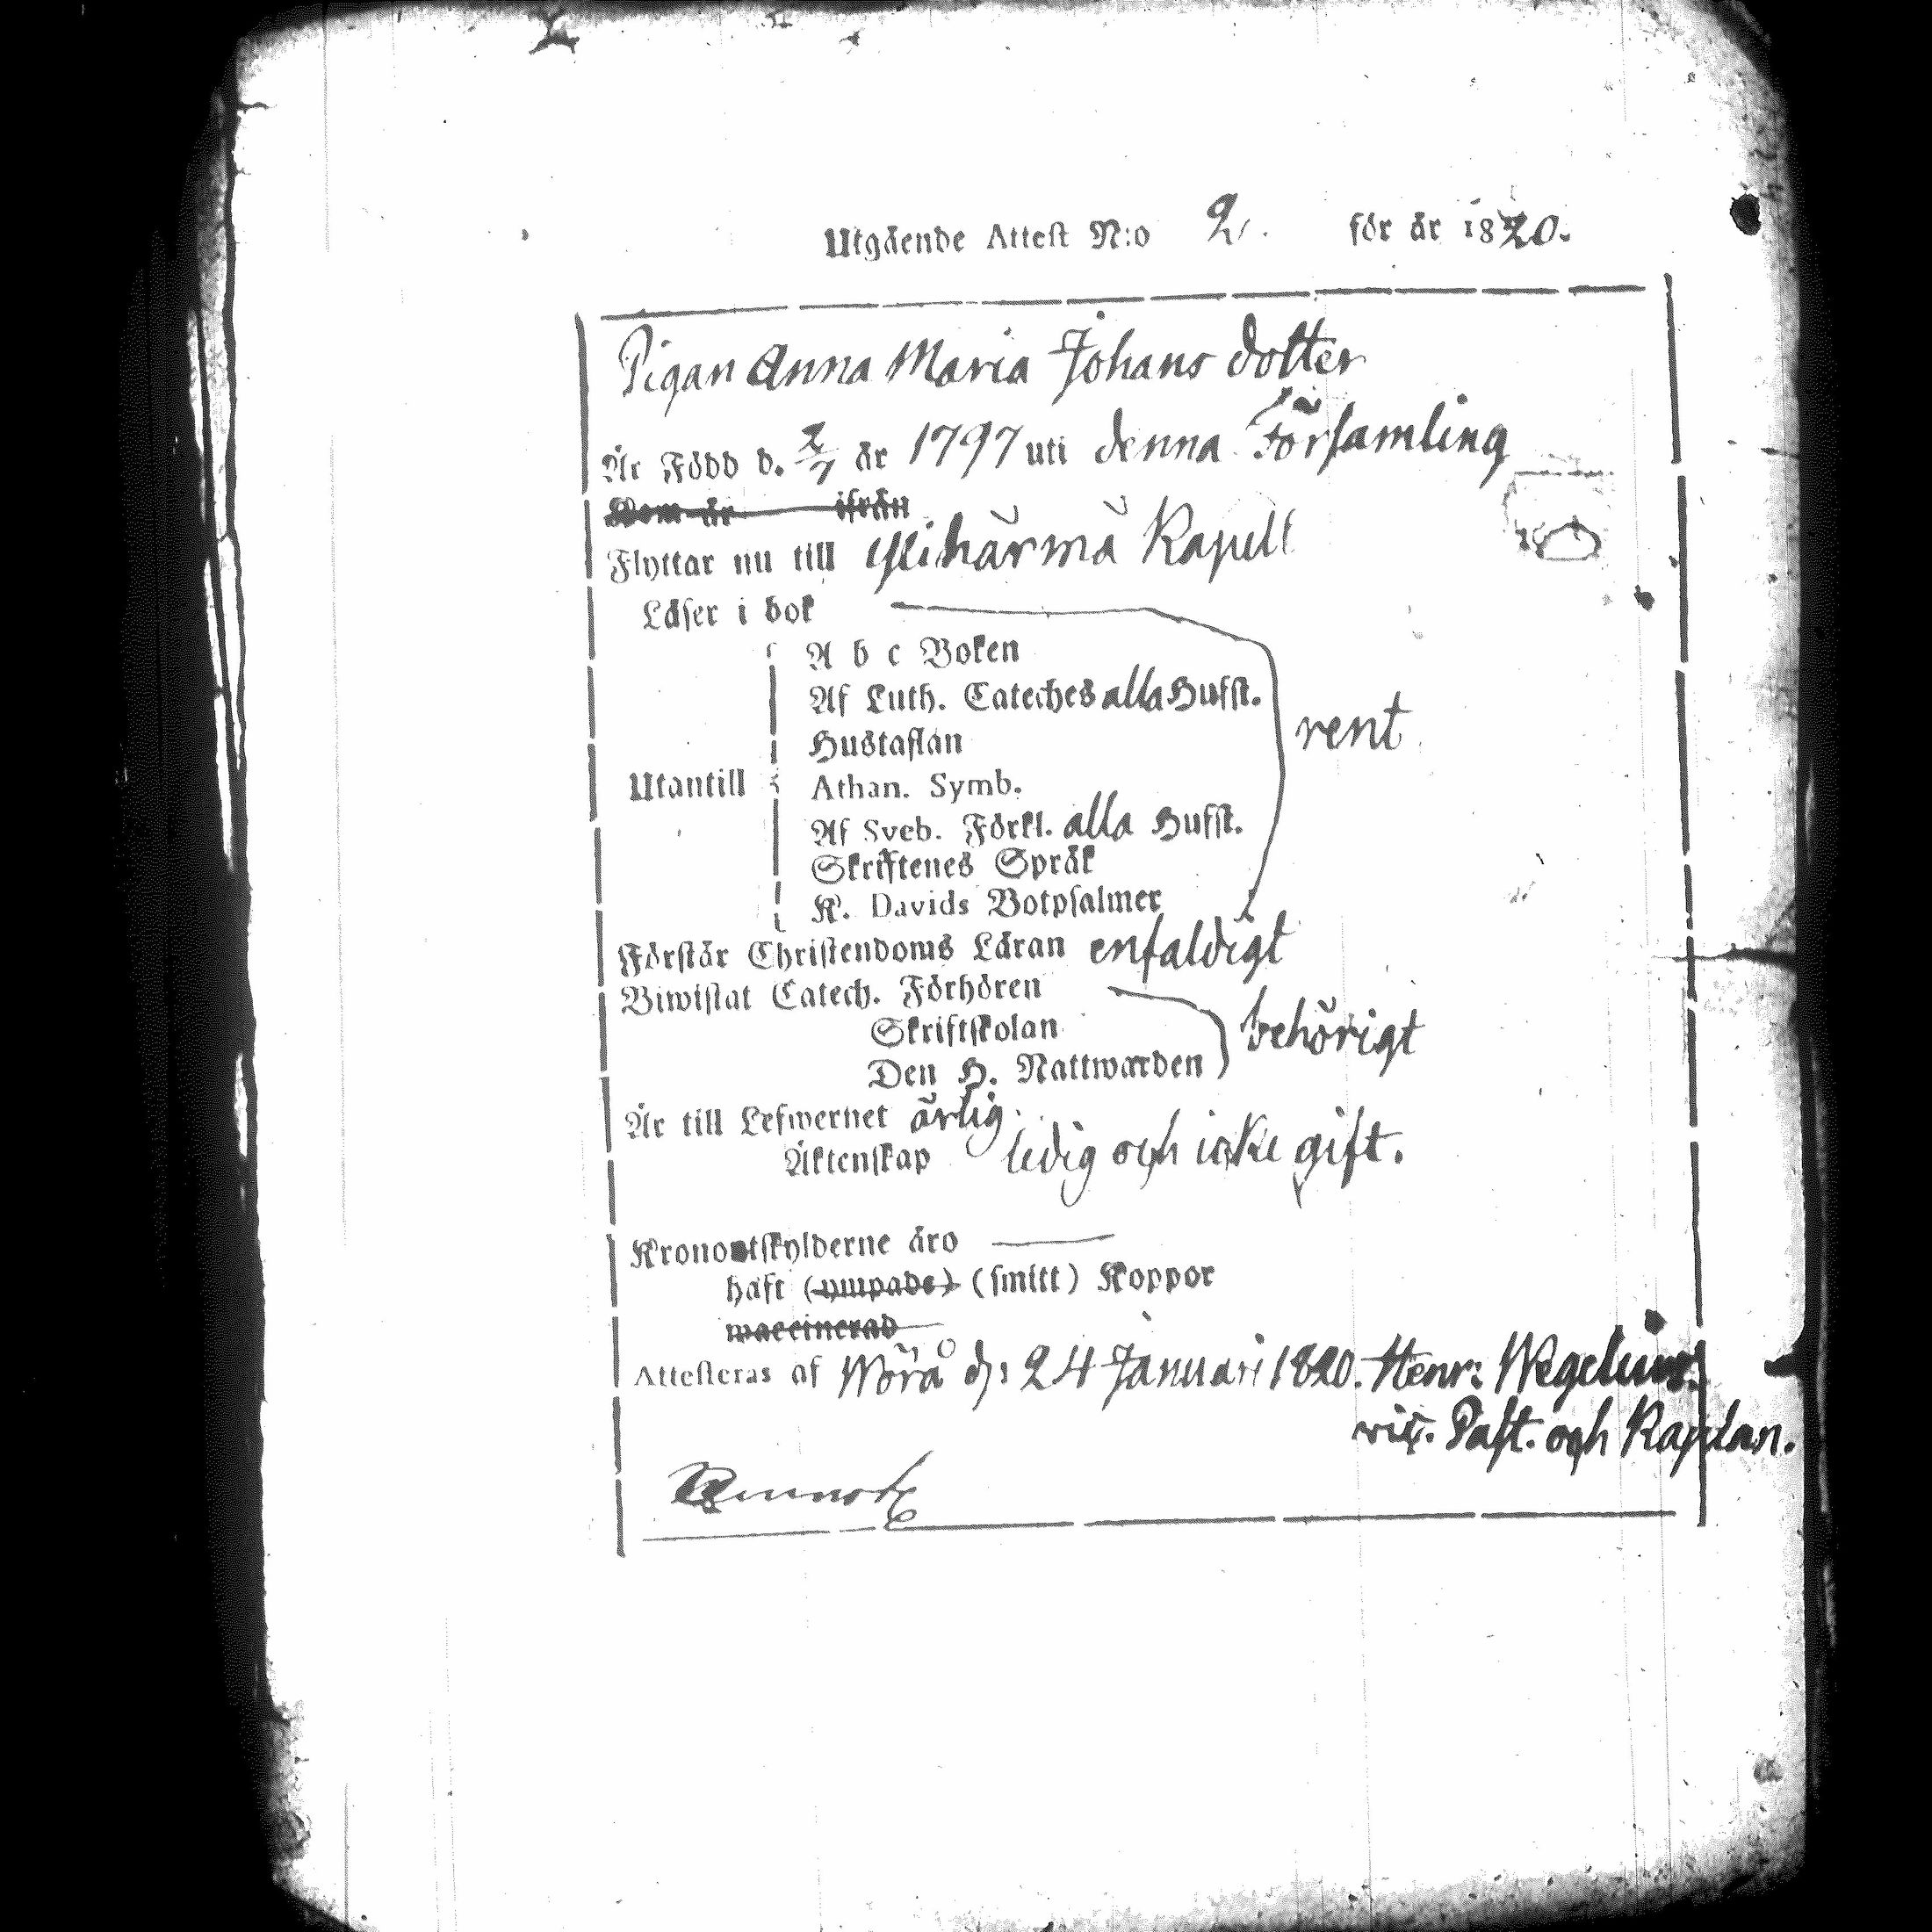 Utgående Attest N:o 2. för år 1820.
Pigan Anna Maria Johans dotter
Är Född d. 2/7 år 1797 uti denna Församling
Kom år ifrån
Flyttar nu till Ylihärmä Kapell
Läser i bok
A b c Boken
Af Luth. Cateches alla Hufst.
Hustaflan
rent
Utantill
Athan. Symb.
Af Sveb. Förkl. alla Hufst.
Skriftenes Språk
K. Davids Botpsalmer
Förstår Christendoms Läran enfaldigt
Biwistat Catech. Förhören
Skriftskolan
behörigt
Den H. Nattwarden
Är till Lefwernet ärlig
Äktenskap ledig och icke gift.
Kronoutskylderne äro
haft (ympade) (smitt) Koppor
waccinerad
Attesteras af Wörå d: 24 Januari 1820. Henr: Wegelius.
vic. Past. och Kaplan.